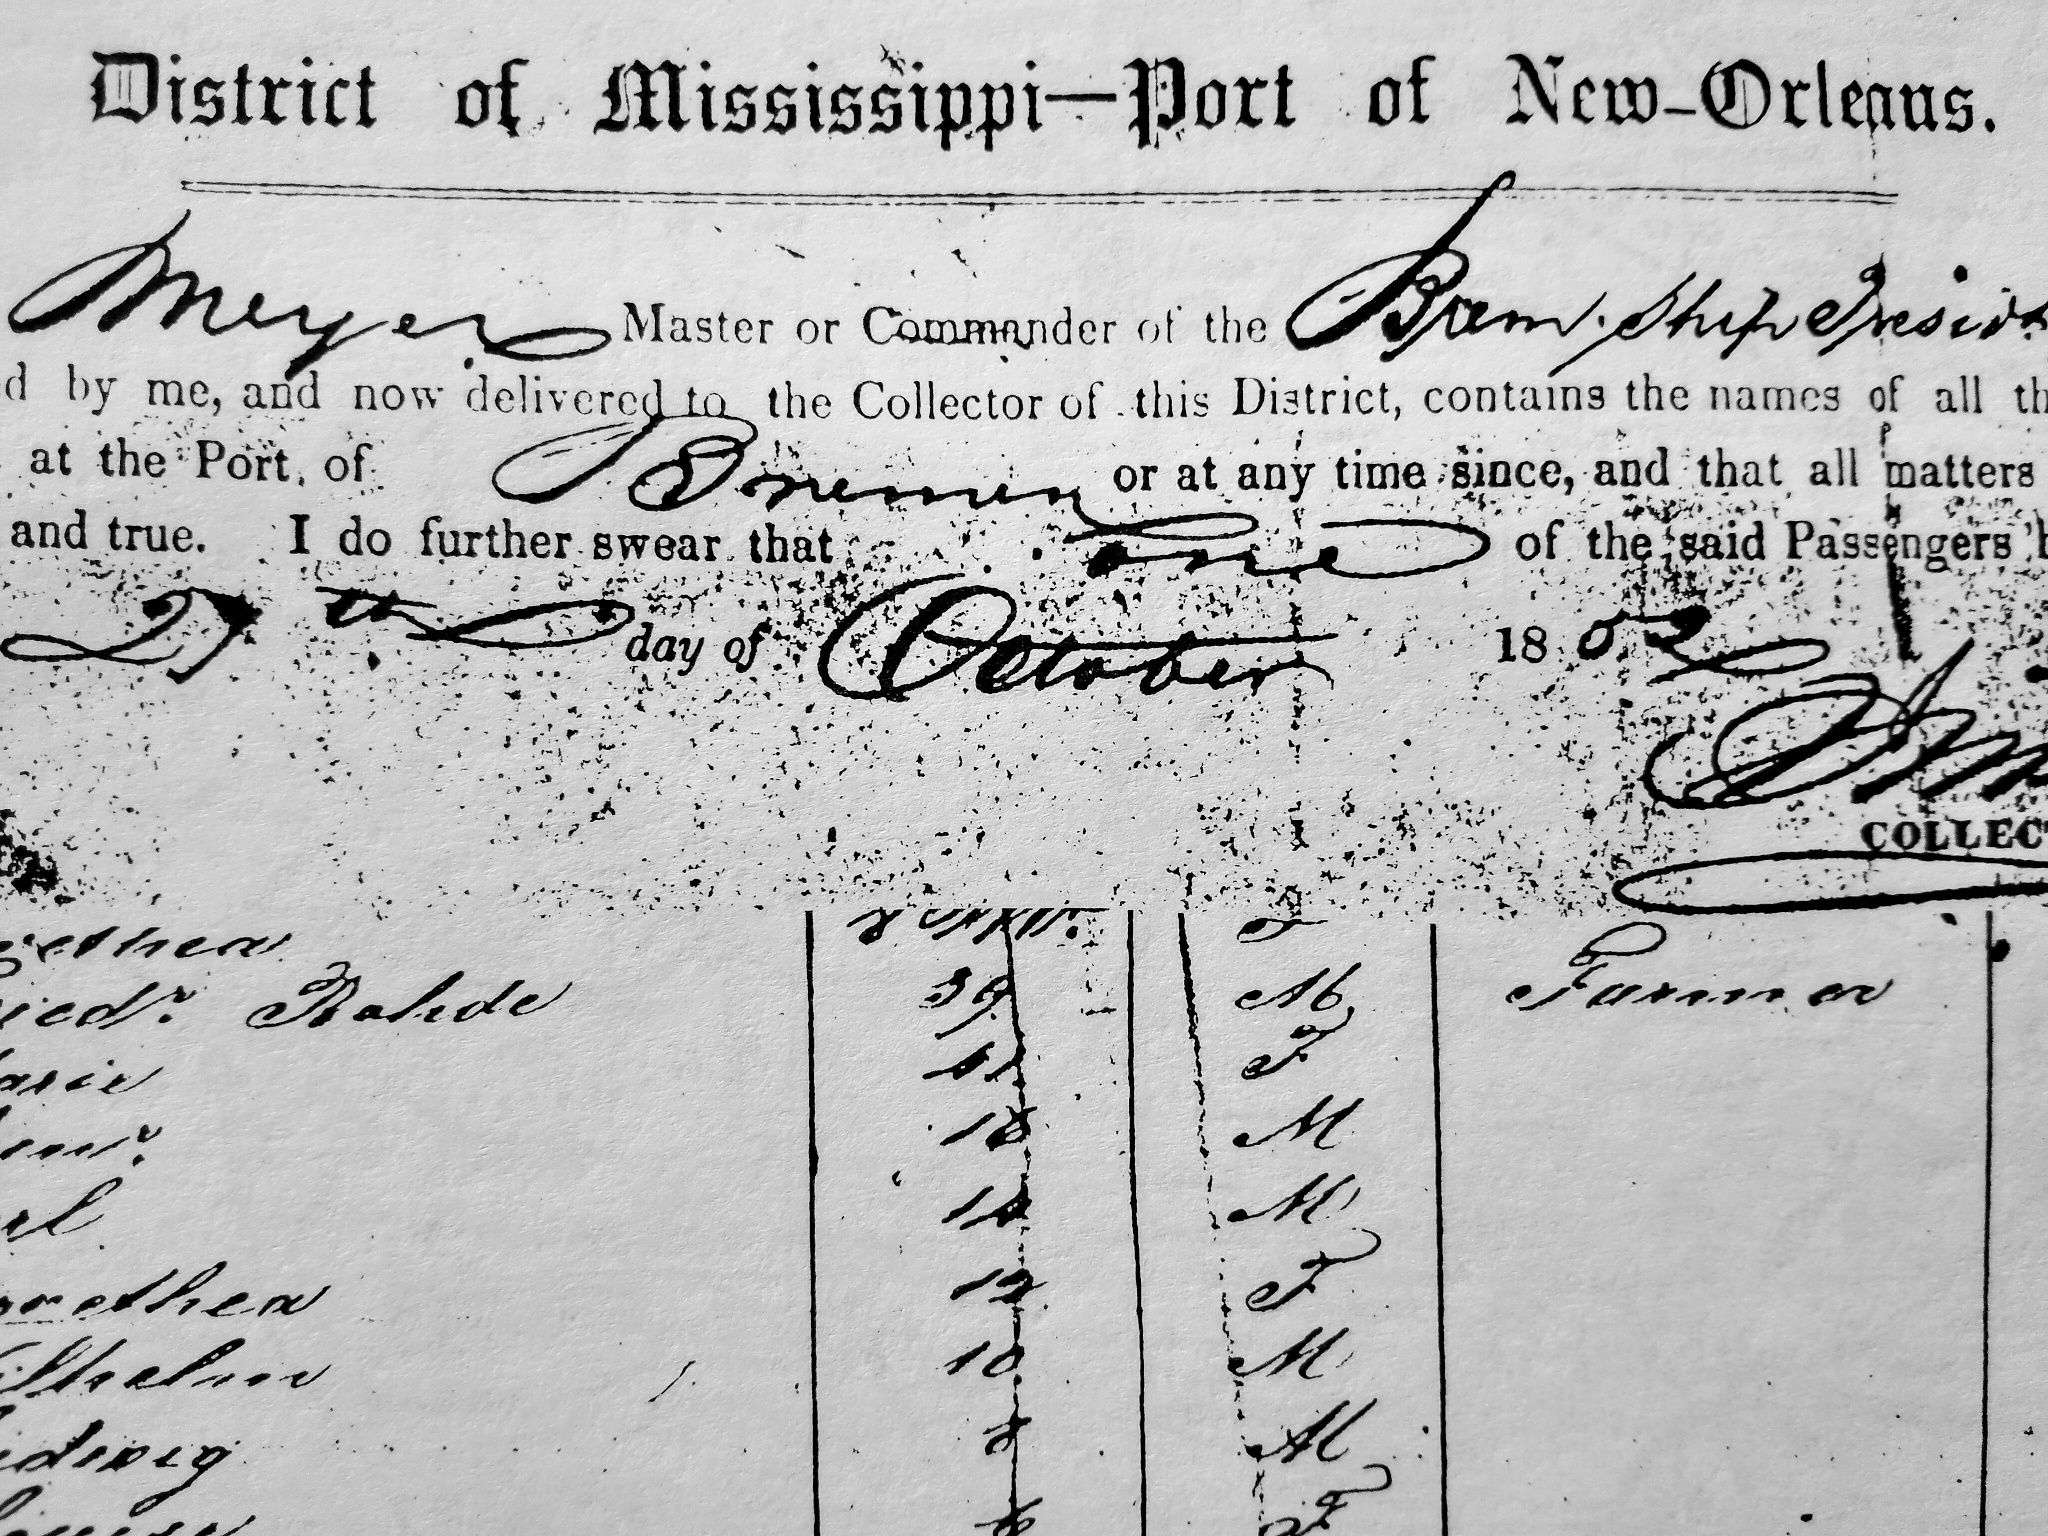 District of Mississippi—Port of New-Orleans.
Meyer Master or Commander of the Brem. Ship Presid
d by me, and now delivered to the Collector of this District, contains the names of all th
at the Port of Bremen or at any time since, and that all matters
and true. I do further swear that one of the said Passengers
27th day of October 1852
COLLEC
ethea F
ied. Rohde 39 M Farmer
arie 41 F
18 M
rl 14 M
orethea 12 F
ilhelm 10 M
udwig 8 M
ouise 6 F